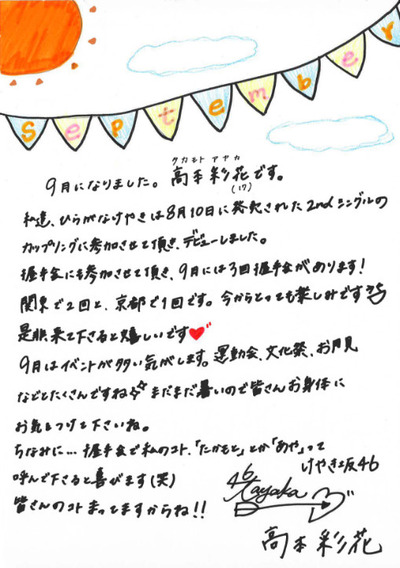 September
タカモト アヤカ
9月になりました。高本彩花です。
(17)
私達、ひらがなけやきは8月10日に発売された2ndシングルの
カップリングに参加させて頂き、デビューしました。
握手会にも参加させて頂き、9月には3回握手会があります!
関東で2回と、京都で1回です。今からとっても楽しみです
是非来て下さると嬉しいです
9月はイベントが多い気がします。運動会、文化祭、お月見
などとたくさんですね まだまだ暑いので皆さんお身体に
お気をつけて下さいね。
ちなみに…握手会で私のコト、「たかもと」とか「あや」って
呼んで下さると喜びます(笑)
皆さんのコトまってますからね!!
けやき坂46
46
Ayaka
高本彩花